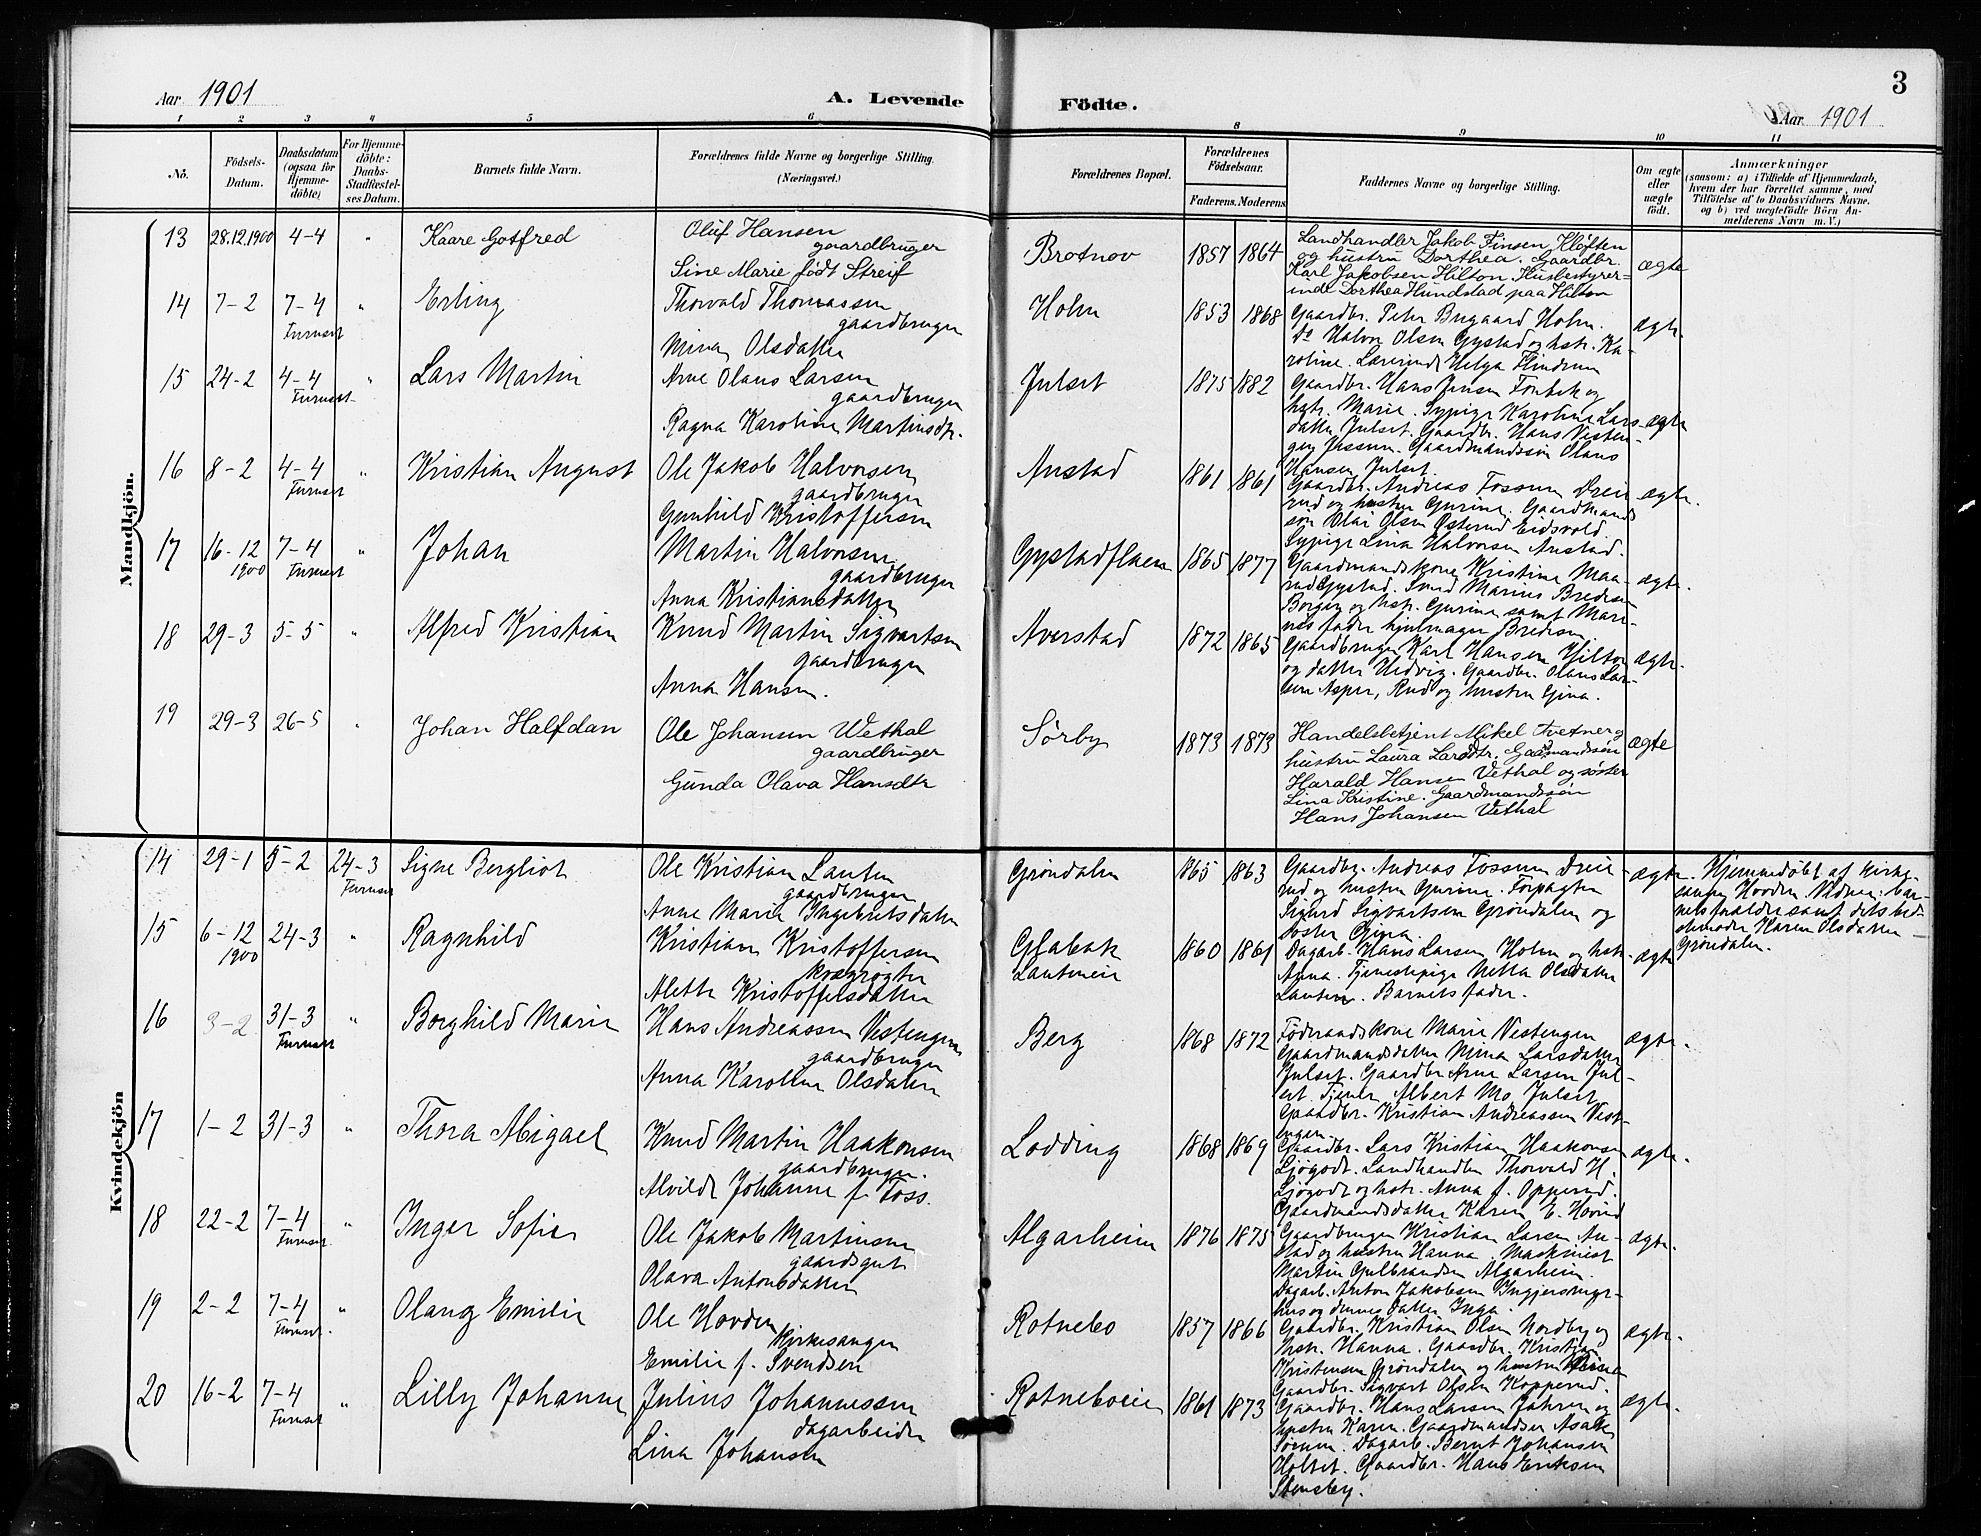 Aar 1901
A. Levende
Födte.
3
Aar 1901
1 2 3 4 5 6 8 9 10 11
No.
Födsels-
Datum.
Daabsdatum
(ogsaa for
Hjemme-
döbte)
For Hjemme-
döbte:
Daabs-
Stadfæstel-
ses Datum.
Barnets fulde Navn.
Forældrenes fulde Navne og borgerlige Stilling.
(Næringsvei.)
Forældrenes Bopæl.
Forældrenes
Födselsaar.
Faderens. Moderens.
Faddernes Navne og borgerlige Stilling.
Om ægte
eller
uægte
födt.
Anmærkninger
(saasom: a) i Tilfælde af Hjemmedaab,
hvem der har forrettet samme, med
Tilföielse af to Daabsvidners Navne.
og b) ved uægtefödte Börn An-
melderens Navn m. V.)
Mandkjön.
13 28.12.1900 4-4 " Kaare Gotfred
Oluf Hansen
gaardbruger
Sine Marie født Streif
Brotnov 1857 1864
Landhandler Jakob Finsen Kløften
og hustru Dorthea. Gaardbr.
Karl Jakobsen Hilton, Husbestyrer-
inde Dorthea Hundstad paa Hilton
ægte
14 7-2 7-4 " Erling
Furuset
Thorvald Thomassen
gaardbruger
Mina Olsdatter
Holm 1853 1868
Gaardbr. Peter Bugaard Holm.
Do Halvor Olsen Gystad og hstr. Ka-
roline. Lærerinde Helga Flindrum
ægte.
15 24-2 4-4 " Lars Martin
Furuset
Arne Olaus Larsen
gaardbruger
Ragna Karoline Martinsdtr.
Julset 1875 1882
Gaardbr. Hans Jensen Fonbek og
hstr. Marie. Sypige Karoline Lars-
datter Julset. Gaardbr. Hans Vesten-
gen Jessum. Gaardmandssøn Olaus
Hansen Julset.
ægte
16 8-2 4-4 " Kristian August
Furuset
Ole Jakob Halvorsen
gaardbruger
Gunhild Kristoffersen
Anstad 1861 1861
Gaardbr. Andreas Fossum Dreie
rud og hustru Gurine. Gaardmands
søn Olai Olsen Østerud Eidsvold.
Sypige Lina Halvorsen Anstad.
ægte.
17 16-12 7-4 " Johan
1900 Furuset
Martin Halvorsen
gaardbruger
Anna Kristiansdatter
Gystadflaen 1865 1877
Gaardmandskone Kristine Maa-
rud Gystad. Smed Marius Bredesen
Borgen og hstr. Gurine samt Mari-
us fader hjulmager Bredesen
ægte.
18 29-3 5-5 " Alfred Kristian
Knud Martin Sigvartsen
gaardbruger
Anna Hansen.
Averstad 1872 1865
Gaardbruger Karl Hansen Hilton
og datter Hedvig. Gaardbr. Olaus Lar-
sen Asper, Rud og hustru Gina.
ægte.
19 29-3 26-5 " Johan Halfdan
Ole Johansen Wethal
gaardbruger
Gunda Olava Hansdtr
Sørby 1873 1873
Handelsbetjent Mikel Tvetner og
hustru Laura Larsdtr. Gaardmandssøn
Harald Hansen Vethal og søster
Lina Kristine. Gaardmandssøn
Hans Johansen Vethal
ægte
Kvindekjön
14 29-1 5-2 24-3 Signe Bergliot
Furuset
Ole Kristian Lauten
gaardbruger
Anne Marie Ingebretsdatter
Grøndalen 1865 1863
Gaardbr. Andreas Fossum Dreie-
rud og hustru Gurine. Forpagter
Sigurd Sigvartsen Grøndalen og
søster Gina.
ægte.
Hjemmedøbt af kirke-
sanger Hovden. Vidner: bar-
nets forældre samt dets bed-
stemoder Karen Olsdatter
Grøndalen.
15 6-12 24-3 " Ragnhild
1900
Kristian Kristoffersen
kvægrøgter
Alette Kristoffersdatter
Glabak 1860 1861
Lauteneie
Dagarb. Hans Larsen Holm og hstr.
Anna. Tjenestepige Netta Olsdatter
Lauten. Barnets fader.
ægte
16 3-2 31-3 " Borghild Marie
Furuset
Hans Andreassen Vestengen
gaardbruger
Anna Karoline Olsdatter
Berg 1868 1872
Føderaadskone Marie Vestengen
Gaardmandsdatter Mina Larsdatter
Julset. Gaardbr. Arne Larsen Jul-
set. Tjener Albert Mo, Julset.
Gaardbr. Kristian Andreassen Vest-
engen
ægte.
17 1-2 31-3 " Thora Abigael
Knud Martin Haakonsen
gaardbruger.
Alvilde Johanne f. Foss.
Lodding 1868 1869
Gaardbr. Lars Kristian Haakonsen
Ljøgodt. Landhandler Thorvald H.
Ljøgodt og hstr. Anna f. Opperud.
Gaardmandsdatter Karen E. Hovind
ægte.
18 22-2 7-4 " Inger Sofie
Furuset
Ole Jakob Martinsen
gaardsgut
Olava Antonsdatter
Algarheim 1876 1875
Gaardbruger Kristian Larsen An-
stad og hustru Hanna. Maskinist
Martin Gulbrandsen Algarheim.
Dagarb. Anton Jakobsen Ingjershegn-
hus og dennes datter Inga.
ægte.
19 2-2 7-4 " Olaug Emilie
Furuset.
Ole Hovden
kirkesanger
Emilie f. Svendsen
Rotnebo 1857 1866
Gaardbr. Kristian Olsen Nordby og
hstr. Hanna. Gaardbr. Kristian
Kristensen Grøndalen og hustru
Gaardbr. Sigvart Olsen Kopperud.
ægte.
20 16-2 7-4 " Lilly Johanne
Furuset
Julius Johannessen
dagarbeider
Lina Johansen
Rotneboeie 1861 1873
Gaardbr. Hans Larsen Jahren og
hustru Karen. Gaardmandssøn Asak
Sørum. Dagarb. Bernt Johansen
Holtet. Gaardbr. Hans Eriksen
Stensby.
ægte.